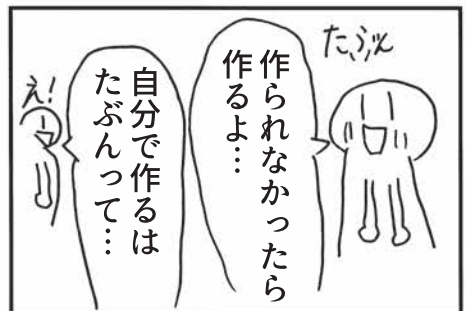 たぶん
作られなかったら
作るよ…
え!
自分で作るは
たぶんって…